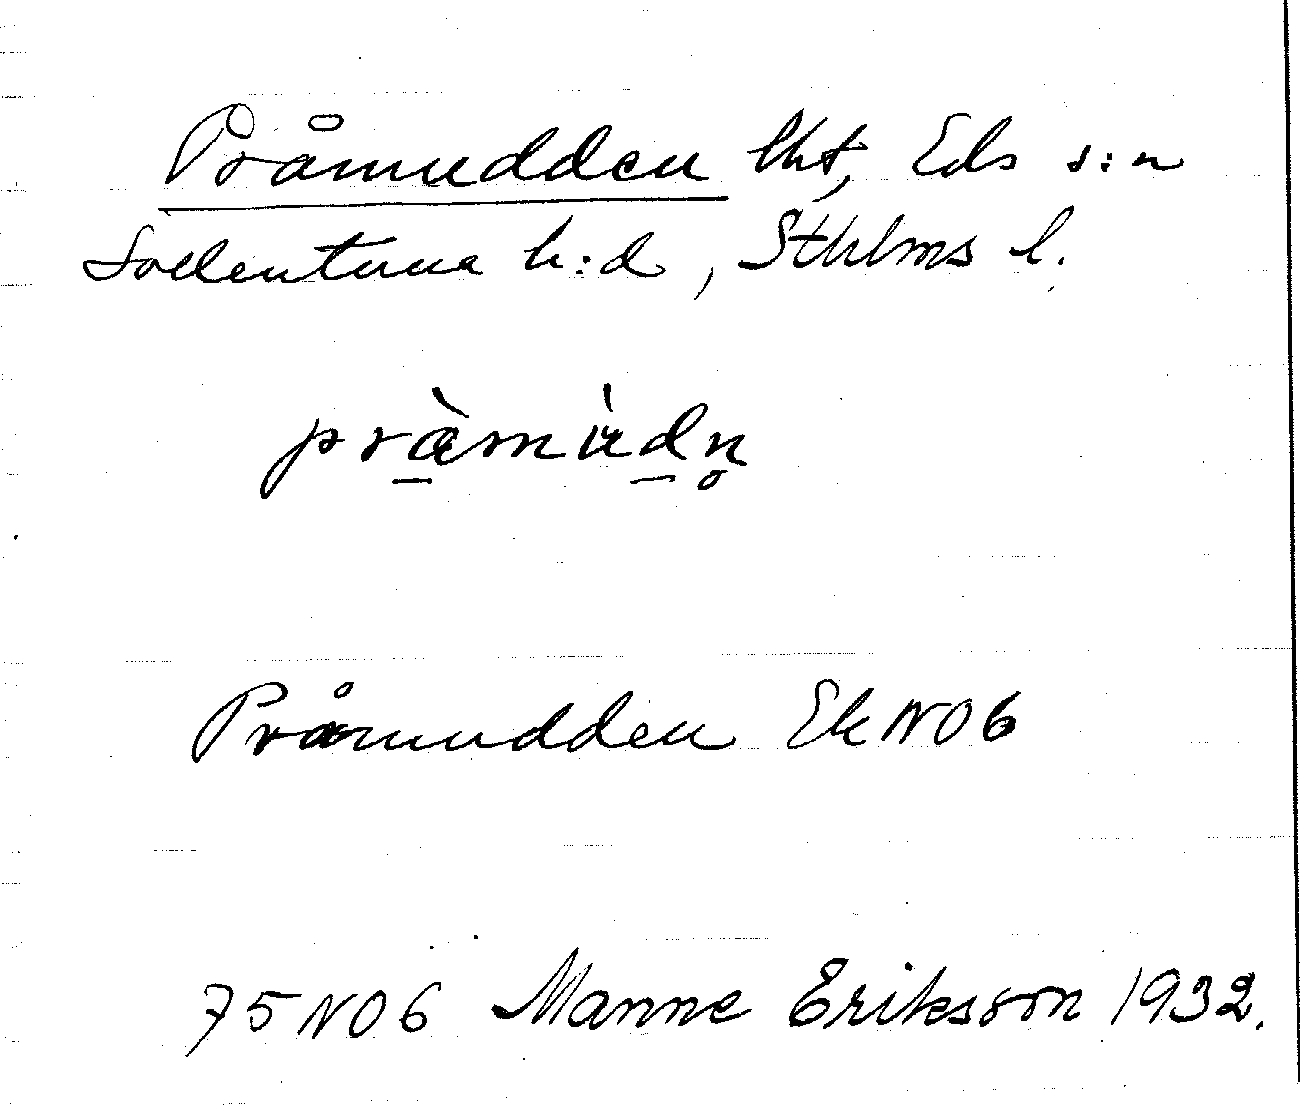 Pråmudden lht, Eds s:n
Sollentuna h:d, Sthlms l.
pràmùdn̥
Pråmudden Ek NO6
75NO6 Manne Eriksson 1932.